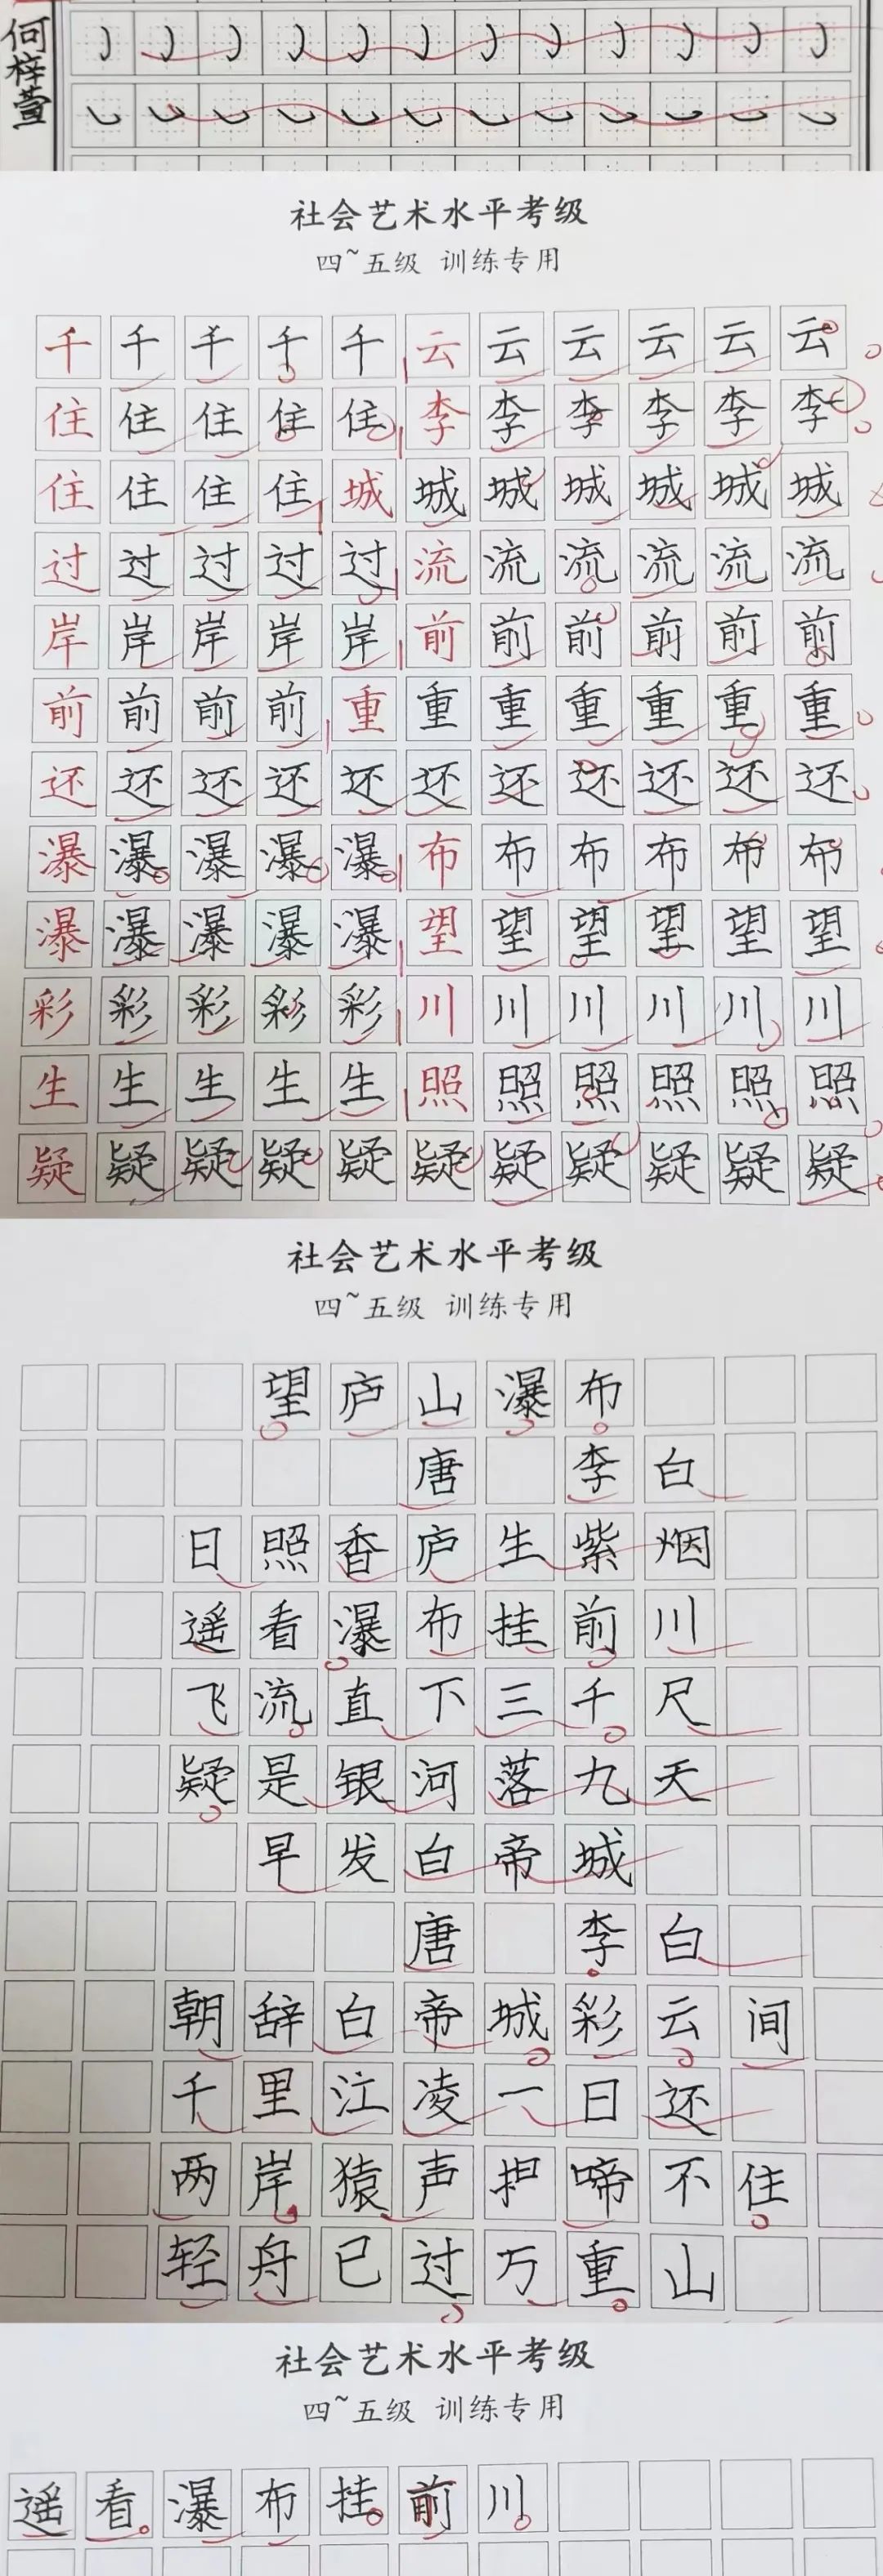 何梓萱
社会艺术水平考级
四~五级 训练专用
千千千千千云云云云云云
住住住住住李李李李李李
住住住住城城城城城城城
过过过过过流流流流流流
岸岸岸岸岸前前前前前前
前前前前重重重重重重重
还还还还还还还还还还还
瀑瀑瀑瀑瀑布布布布布布
瀑瀑瀑瀑瀑望望望望望望
彩彩彩彩彩川川川川川川
生生生生生照照照照照照
疑疑疑疑疑疑疑疑疑疑疑
社会艺术水平考级
四~五级 训练专用
望庐山瀑布
唐 李白
日照香庐生紫烟
遥看瀑布挂前川
飞流直下三千尺
疑是银河落九天
早发白帝城
唐 李白
朝辞白帝城彩云间
千里江凌一日还
两岸猿声啼不住
轻舟已过万重山
社会艺术水平考级
四~五级 训练专用
遥看瀑布挂前川